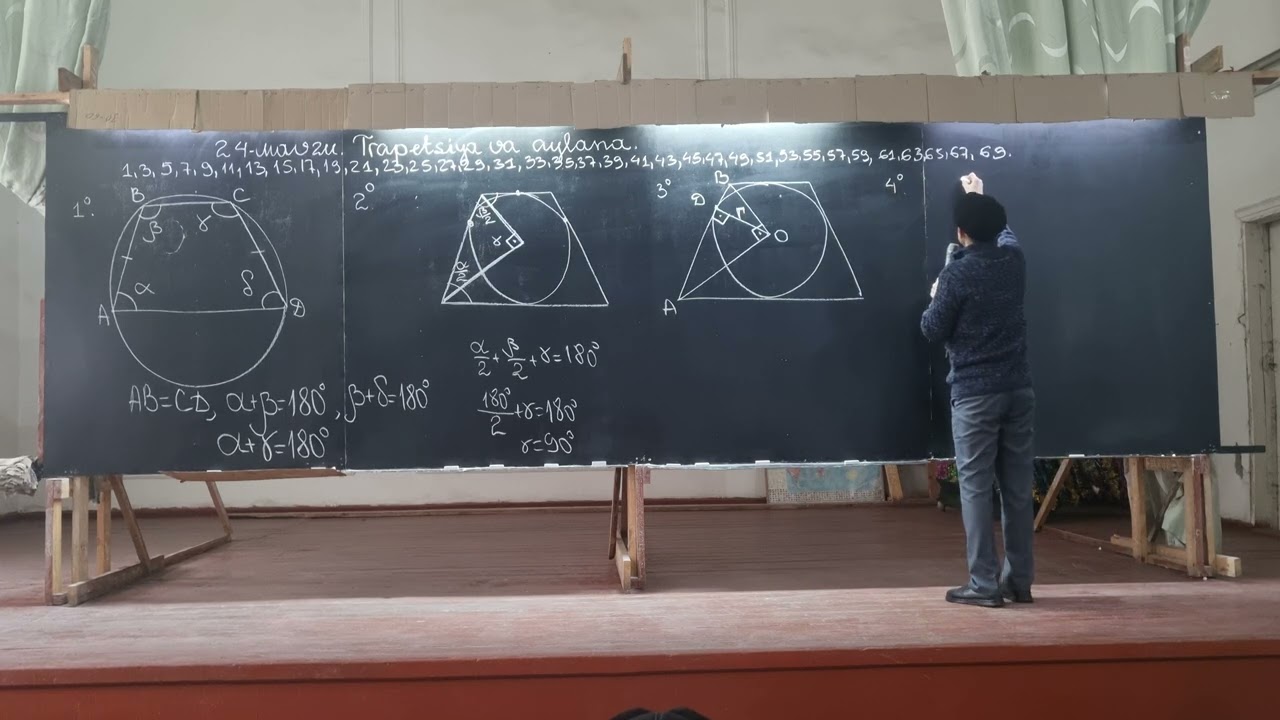 24-mavzu. Trapetsiya va aylana.
1,3,5,7,9,11,13,15,17,19,21,23,25,27,29,31,33,35,37,39,41,43,45,47,49,51,53,55,57,59,61,63,65,67,69.
1°.
B C
β γ
α δ
A D
AB=CD, α+β=180°, β+δ=180°
α+γ=180°
2°
β/2
γ
α/2
α/2+β/2+γ=180°
180°/2+γ=180°
γ=90°
3°
B
D r
O
A
4°